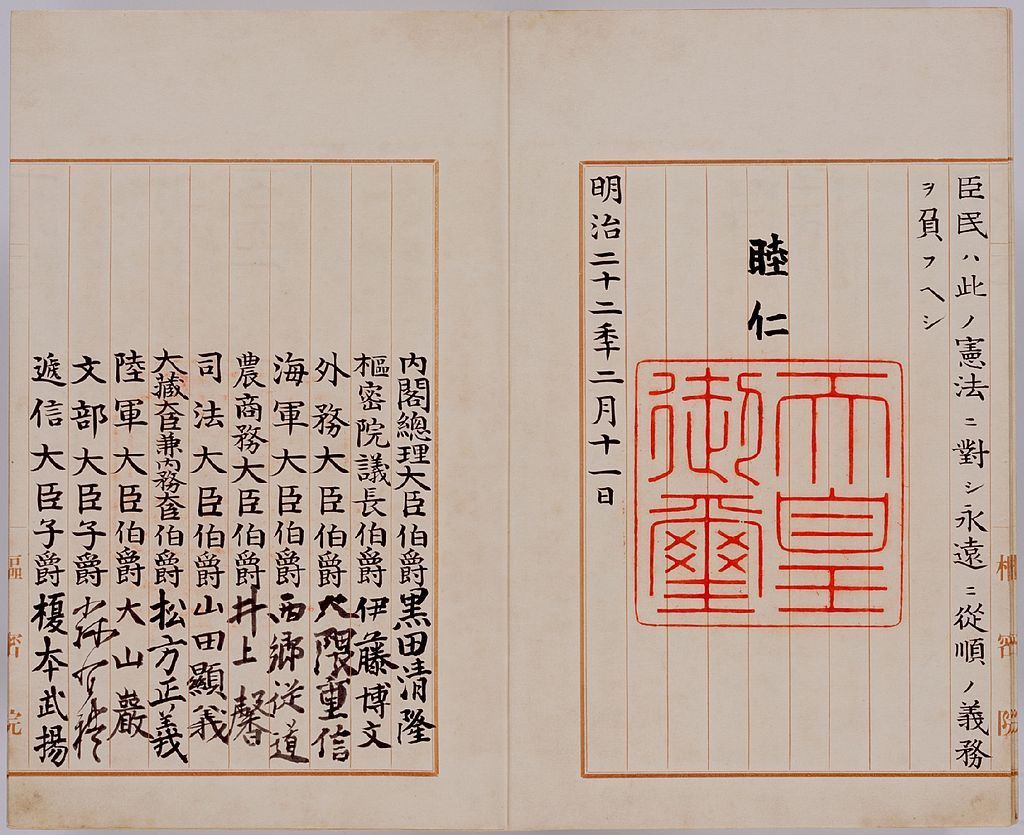 臣民ハ此ノ憲法ニ對シ永遠ニ從順ノ義務
ヲ負フヘシ
睦仁
天皇
御璽
明治二十二季二月十一日
樞密院
内閣總理大臣伯爵黒田清隆
樞密院議長伯爵伊藤博文
外務大臣伯爵大隈重信
海軍大臣伯爵西郷従道
農商務大臣伯爵井上馨
司法大臣伯爵山田顯義
大藏大臣兼内務大臣伯爵松方正義
陸軍大臣伯爵大山巖
文部大臣子爵森有礼
遞信大臣子爵榎本武揚
樞密院